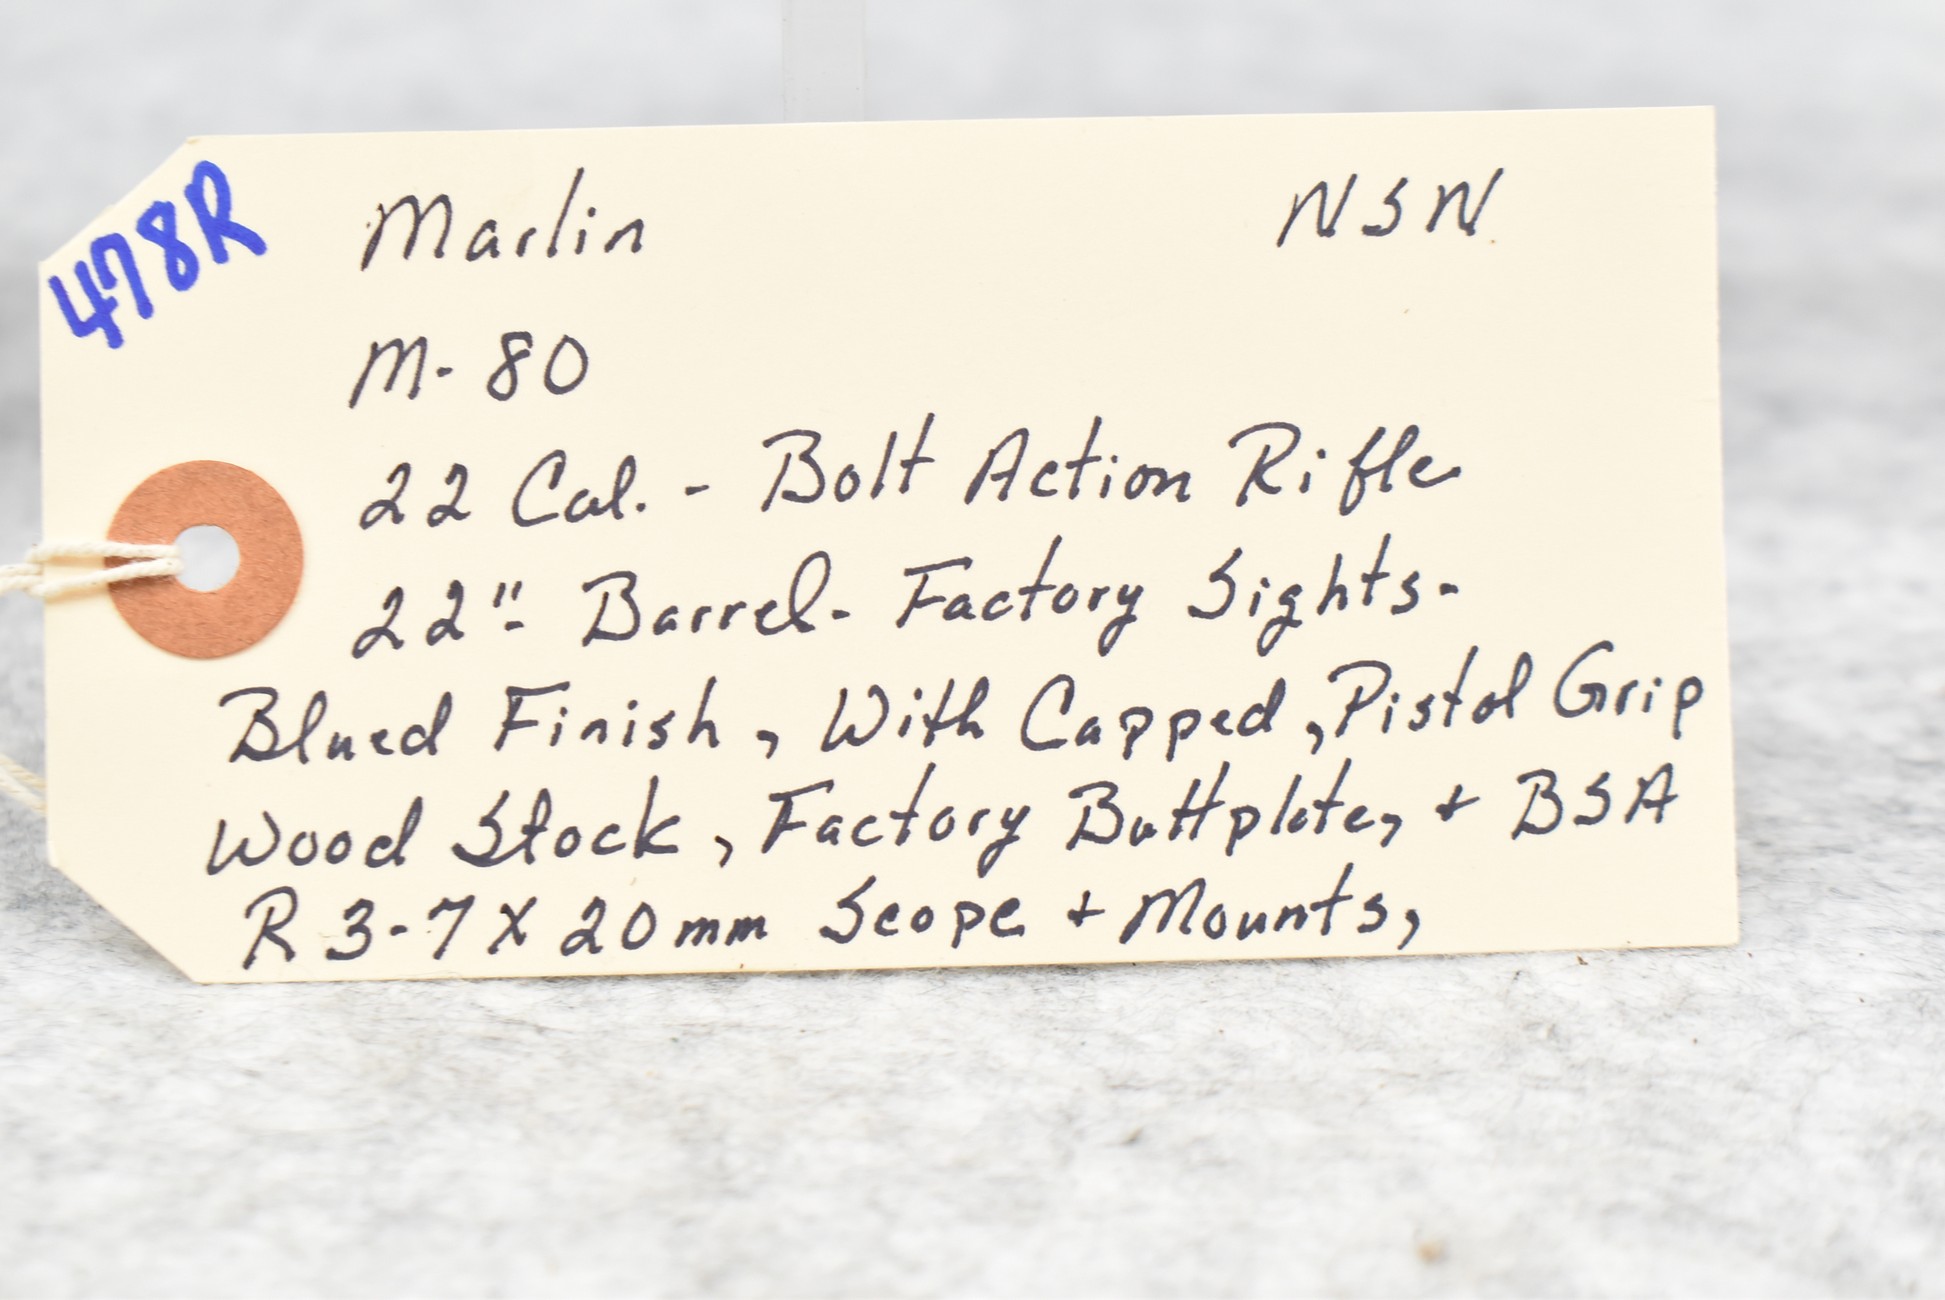 478R
Marlin NSN
M-80
22 Cal. - Bolt Action Rifle
22"- Barrel- Factory Sights-
Blued Finish, With Capped, Pistol Grip
Wood Stock, Factory Buttplate, + BSA
R 3-7X20mm Scope + Mounts,